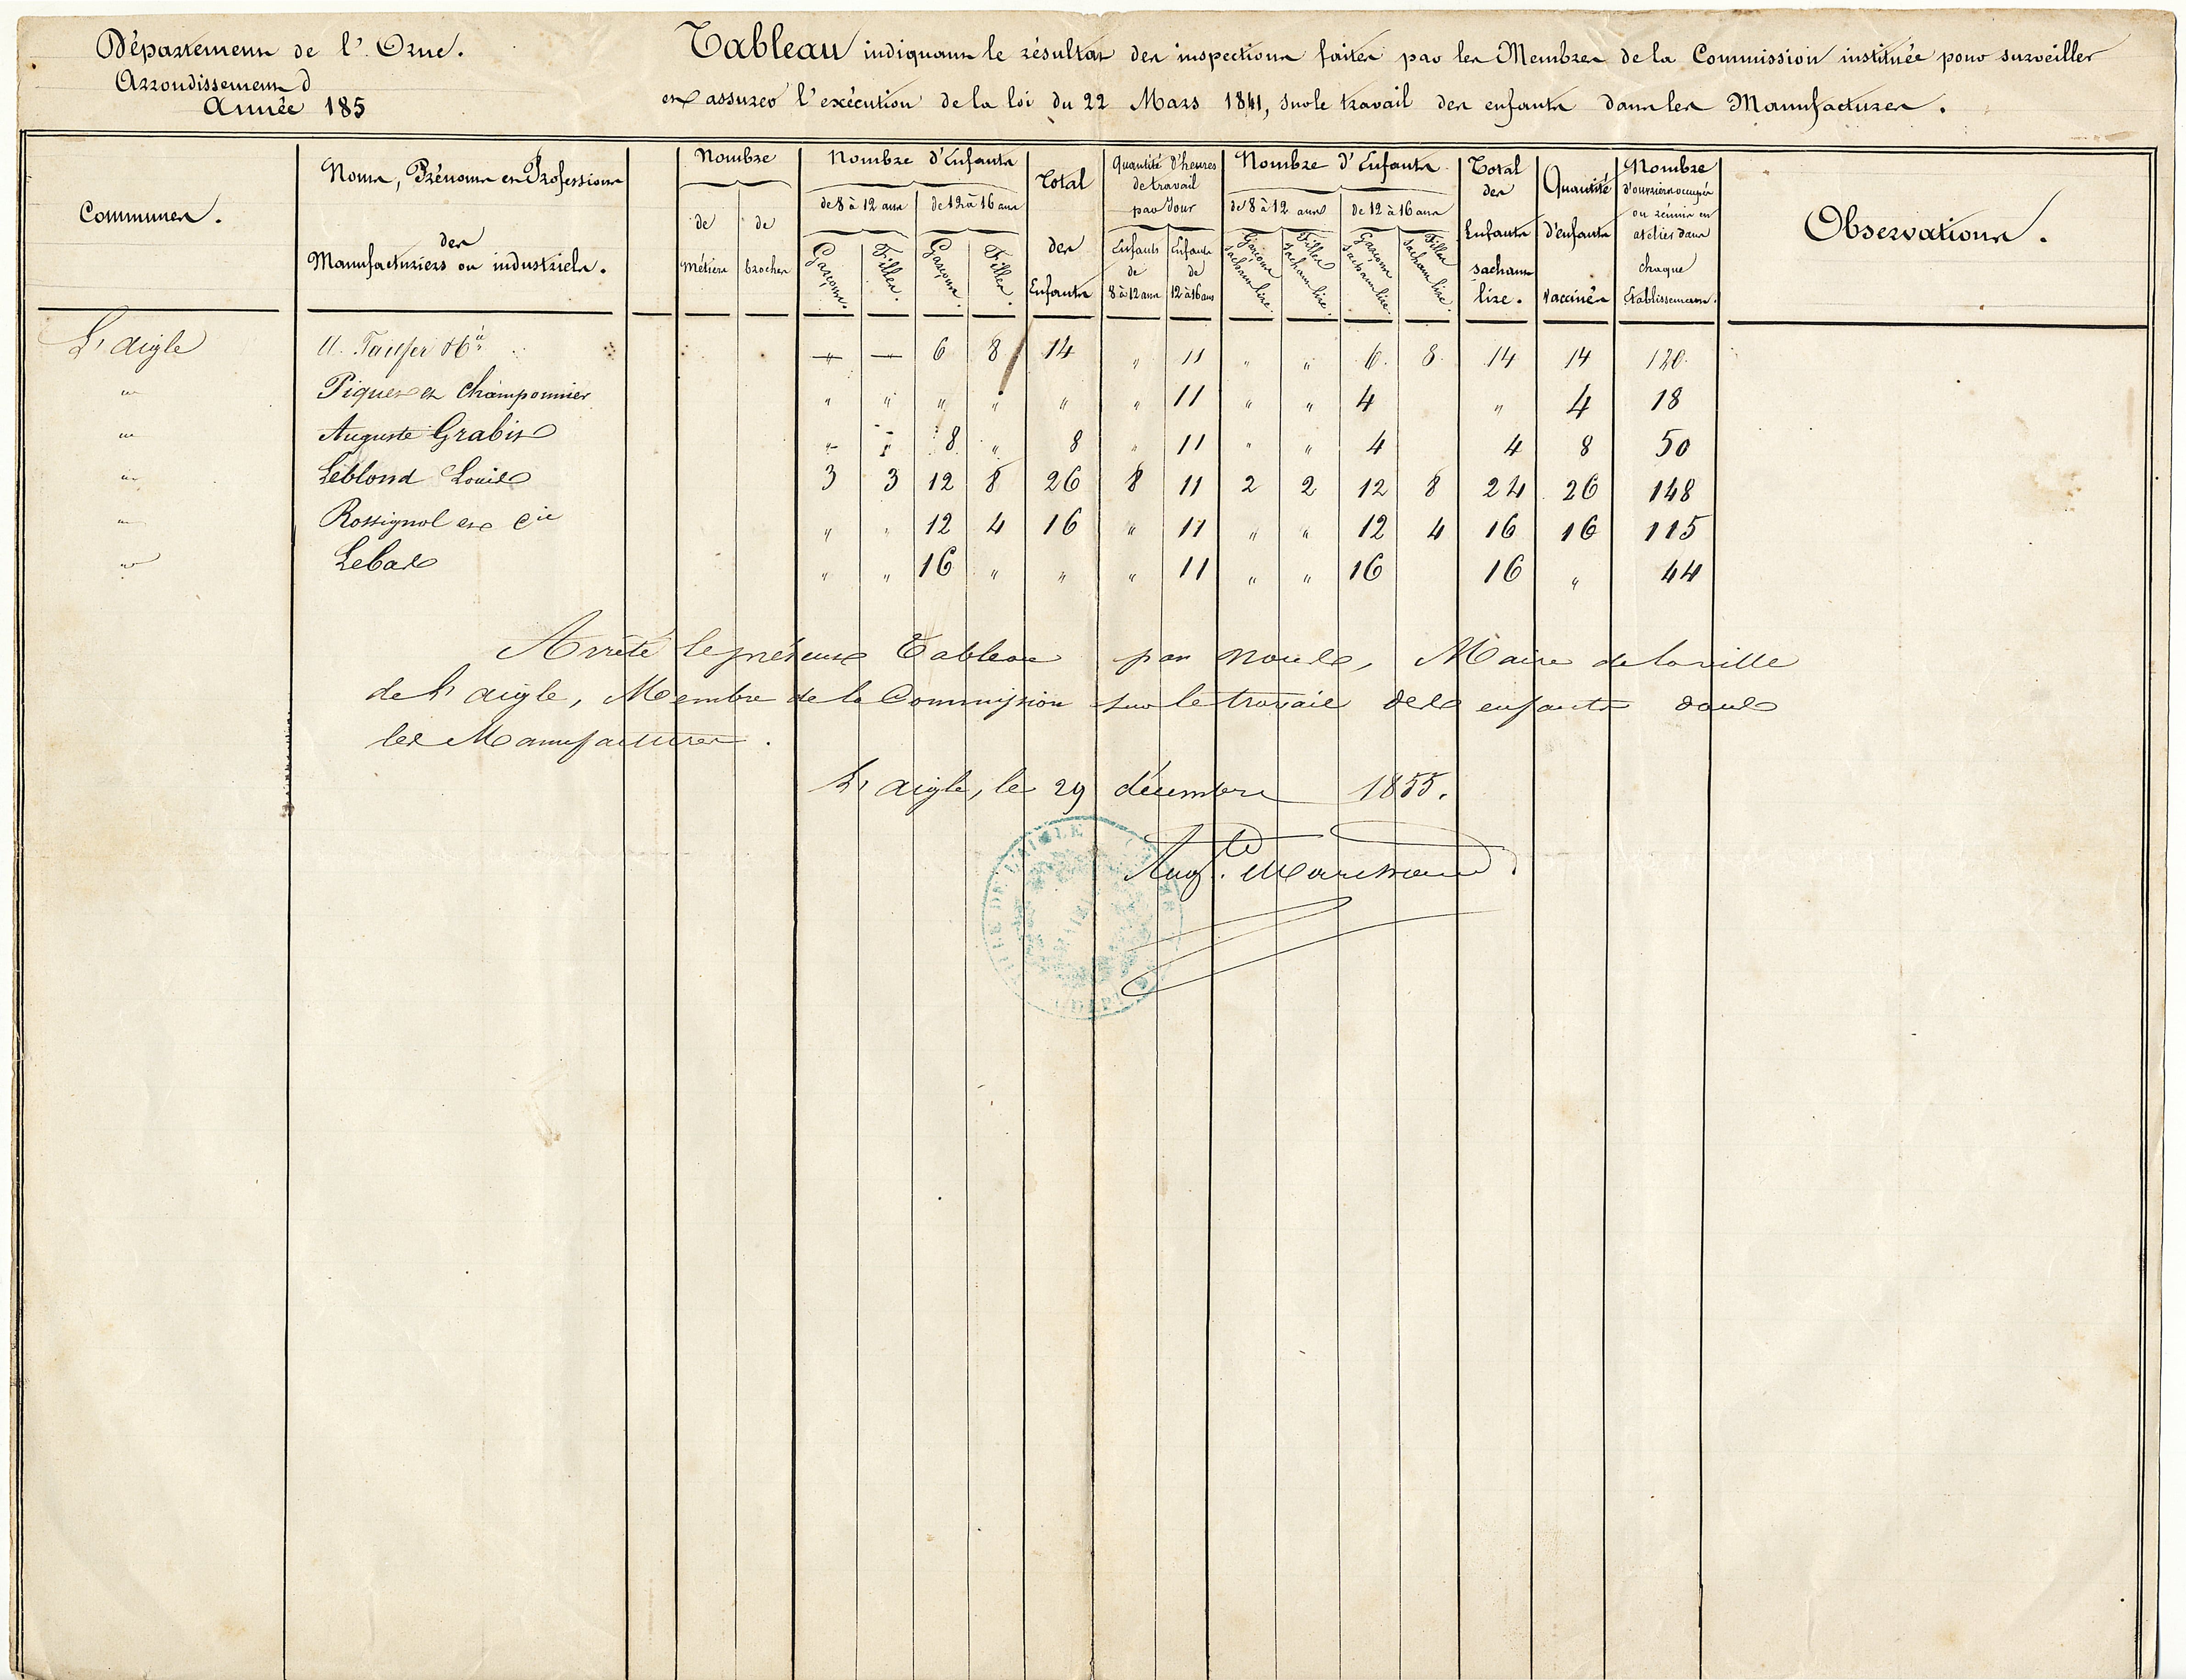 Département de l'Orne.
Arrondissement d
Année 185
Tableau indiquant le résultat des inspections faites par les Membres de la Commission instituée pour surveiller
et assurer l'exécution de la loi du 22 Mars 1841, sur le travail des enfants dans les Manufactures.
Communes.
Noms, Prénoms et Professions
des
Manufacturiers ou industriels.
Nombre
de métiers
de broches
Nombre d'Enfants
de 8 à 12 ans
de 12 à 16 ans
Garçons. Filles. Garçons. Filles.
Total des Enfants
Quantité d'heures de travail par Jour
Enfants de 8 à 12 ans
Enfants de 12 à 16 ans
Nombre d'Enfants
de 8 à 12 ans
de 12 à 16 ans
Garçons sachant lire. Filles sachant lire. Garçons sachant lire. Filles sachant lire.
Total des Enfants sachant lire.
Quantité d'enfants vaccinés
Nombre d'ouvriers occupés ou réunis en ateliers dans chaque Etablissement.
Observations.
L'aigle " " 6 8 14 " 11 " " 6. 8. 14 14 120.
" Piquet et Champonnier " " " " " " 11 " " 4 " 4 18
" Auguste Grabit " " 8 " 8 " 11 " " 4 4 8 50
" Leblond Louis 3 3 12 8 26 8 11 2 2 12 8 24 26 148
" Rossignol et Cie " " 12 4 16 " 11 " " 12 4 16 16 115
" Lebas " " 16 " " " 11 " " 16 16 " 44
Arrêté le présent Tableau par nous, Maire de la ville
de L'aigle, Membre de la Commission sur le travail des enfants dans
les Manufactures.
L'aigle, le 29 décembre 1855.
Aug.te Marchand